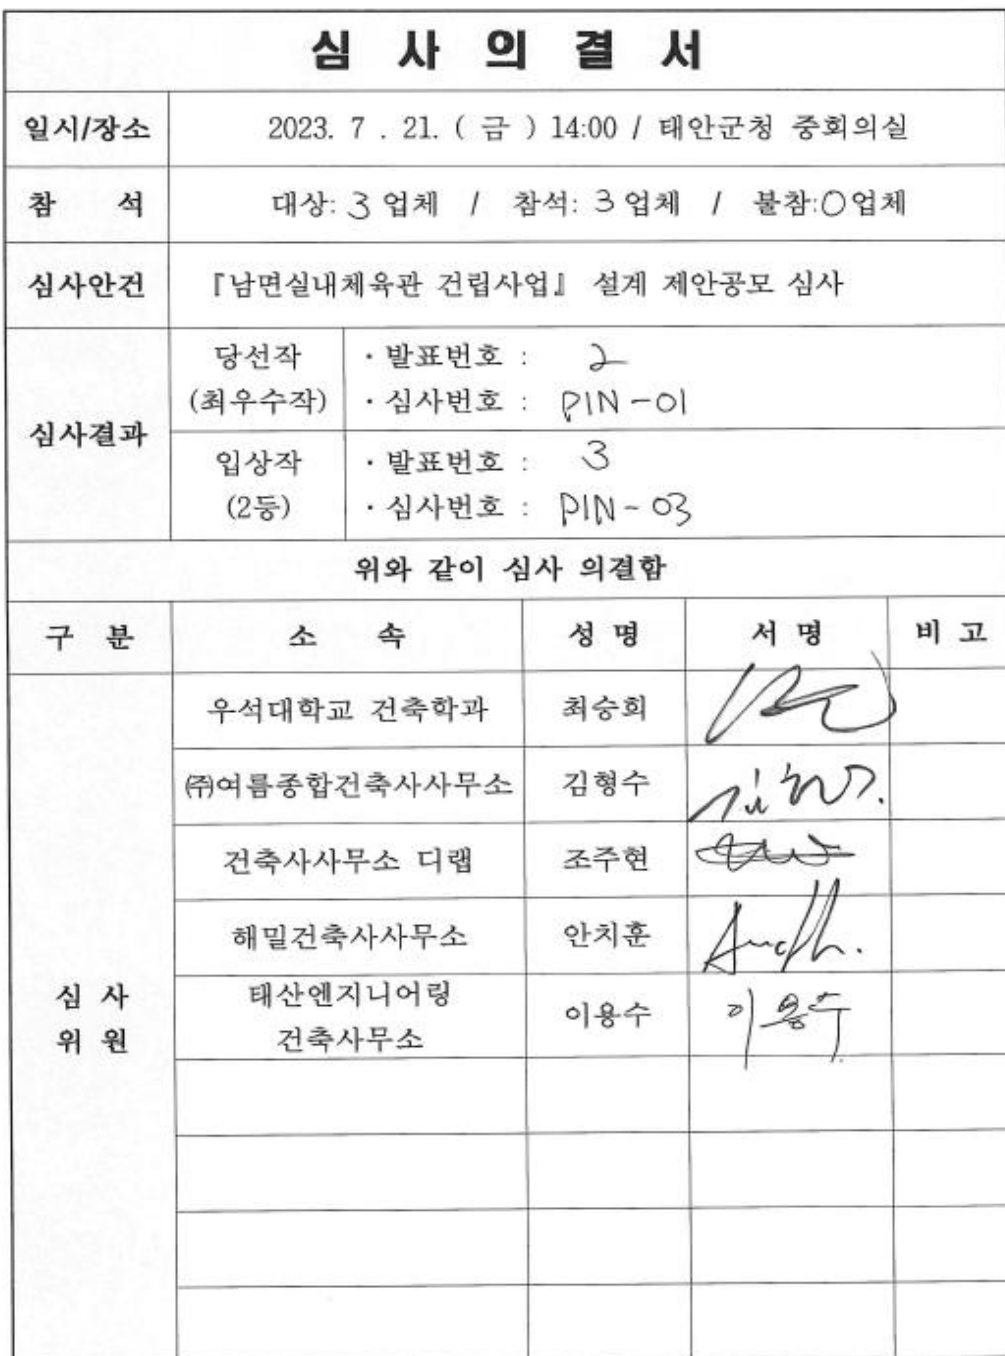 심 사 의 결 서
일시/장소 2023. 7 . 21. ( 금 ) 14:00 / 태안군청 중회의실
참 석 대상: 3 업체 / 참석: 3 업체 / 불참:0업체
심사안건 『남면실내체육관 건립사업』 설계 제안공모 심사
심사결과
당선작
(최우수작)
· 발표번호 : 2
· 심사번호 : PIN-01
입상작
(2등)
· 발표번호 : 3
· 심사번호 : PIN-03
위와 같이 심사 의결함
구 분 소 속 성 명 서 명 비 고
심 사
위 원
우석대학교 건축학과 최승희
㈜여름종합건축사사무소 김형수
건축사사무소 디랩 조주현
해밀건축사사무소 안치훈
태산엔지니어링
건축사무소
이용수 이용수